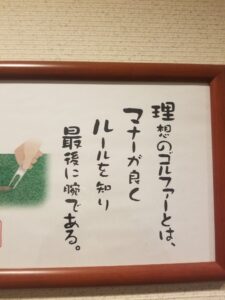 理想のゴルファーとは、
マナーが良く
ルールを知り
最後に腕である。